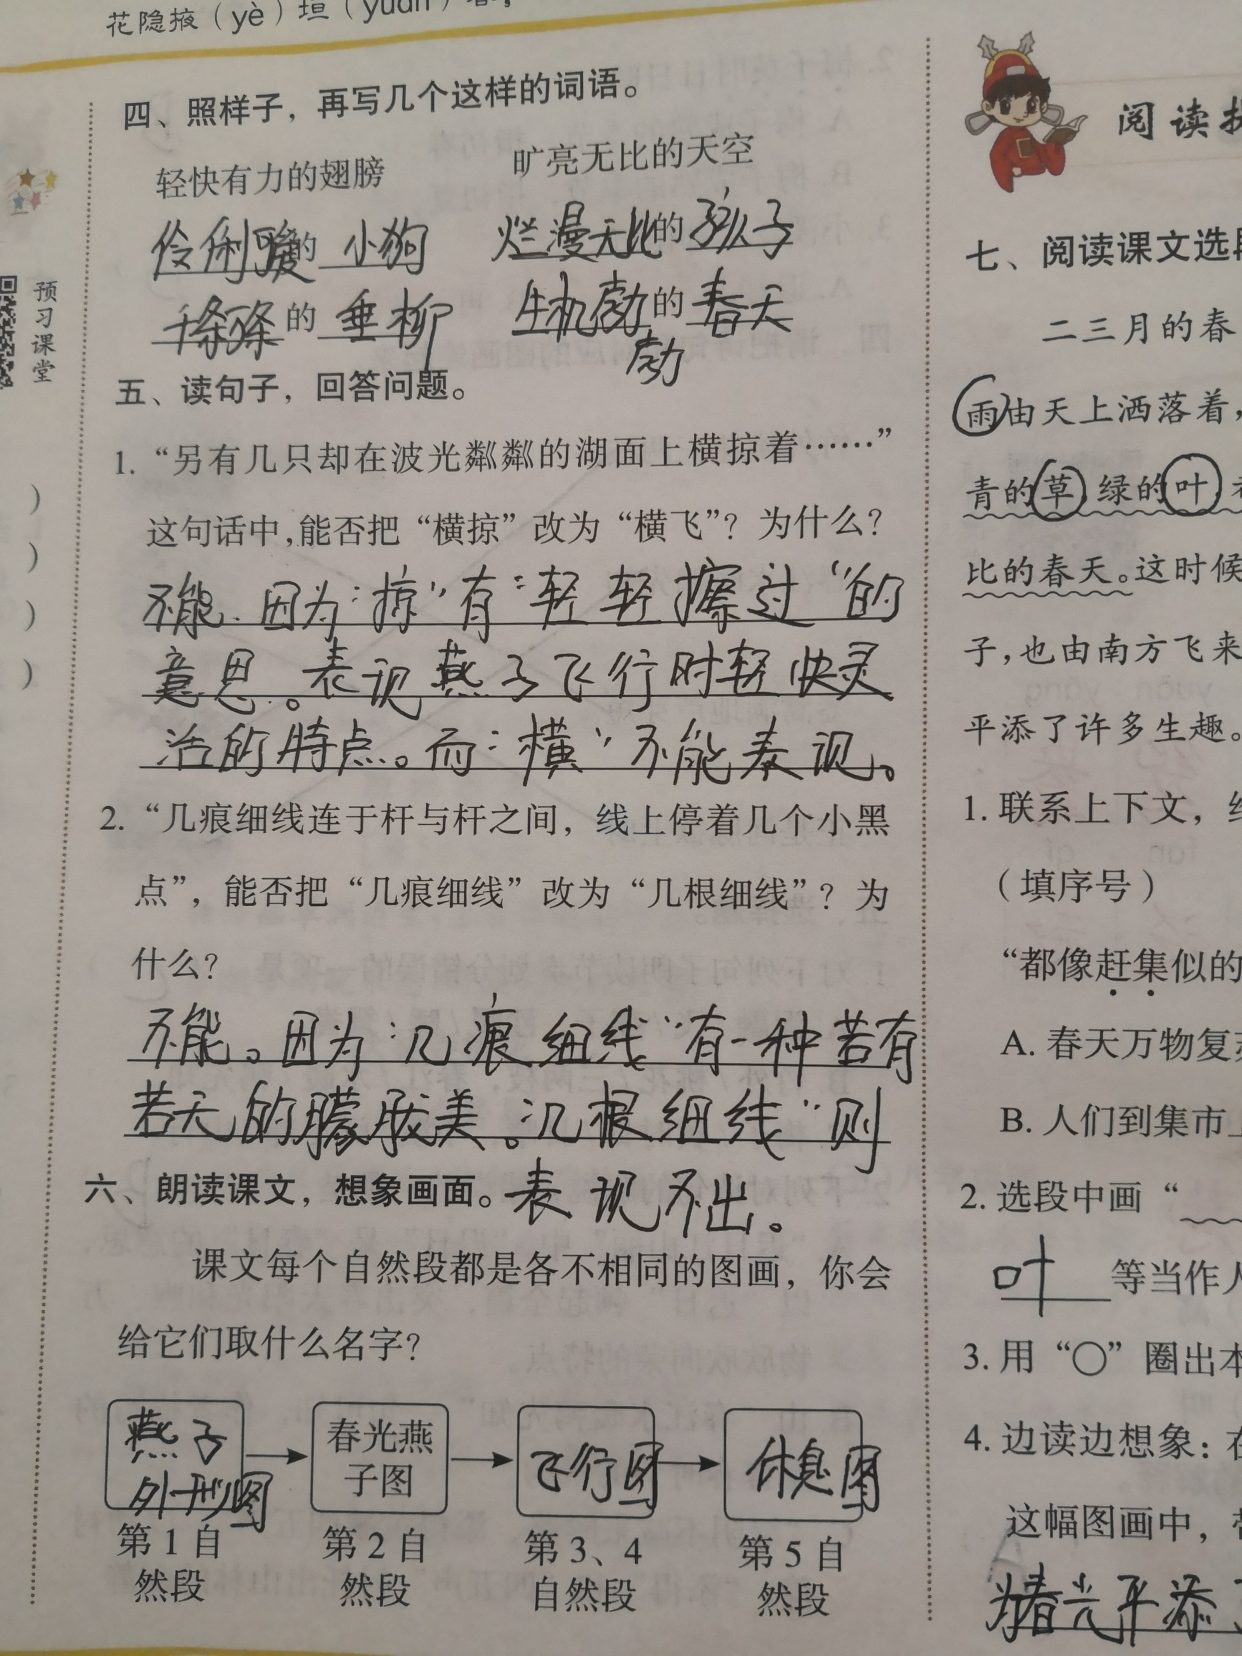 花隐掖（yè）垣（yuán）
四、照样子，再写几个这样的词语。
轻快有力的翅膀 旷亮无比的天空
伶俐 的 小狗 烂漫无比的 孩子
的 垂柳 生机勃勃的 春天
五、读句子，回答问题。
1. “另有几只却在波光粼粼的湖面上横掠着……”
这句话中，能否把“横掠”改为“横飞”？为什么？
不能。因为“掠”有“轻轻擦过”的
意思。表现燕子飞行时轻快灵
活的特点。而“横”不能表现。
2. “几痕细线连于杆与杆之间，线上停着几个小黑
点”，能否把“几痕细线”改为“几根细线”？为
什么？
不能。因为“几痕细线”有一种若有
若无的朦胧美。“几根细线”则
表现不出。
六、朗读课文，想象画面。
课文每个自然段都是各不相同的图画，你会
给它们取什么名字？
燕子
外形图
春光燕
子图
飞行图
休息图
第1自
然段
第2自
然段
第3、4
自然段
第5自
然段
预习课堂
）
）
）
）
阅读
七、阅读课文选
二三月的春
雨由天上洒落着，
青的草，绿的叶，
比的春天。这时候
子，也由南方飞来
平添了许多生趣。
1. 联系上下文，
（填序号）
“都像赶集似的
A. 春天万物复
B. 人们到集市
2. 选段中画“
叶 等当作人
3. 用“○”圈出本
4. 边读边想象：在
这幅图画中，
为春光平添